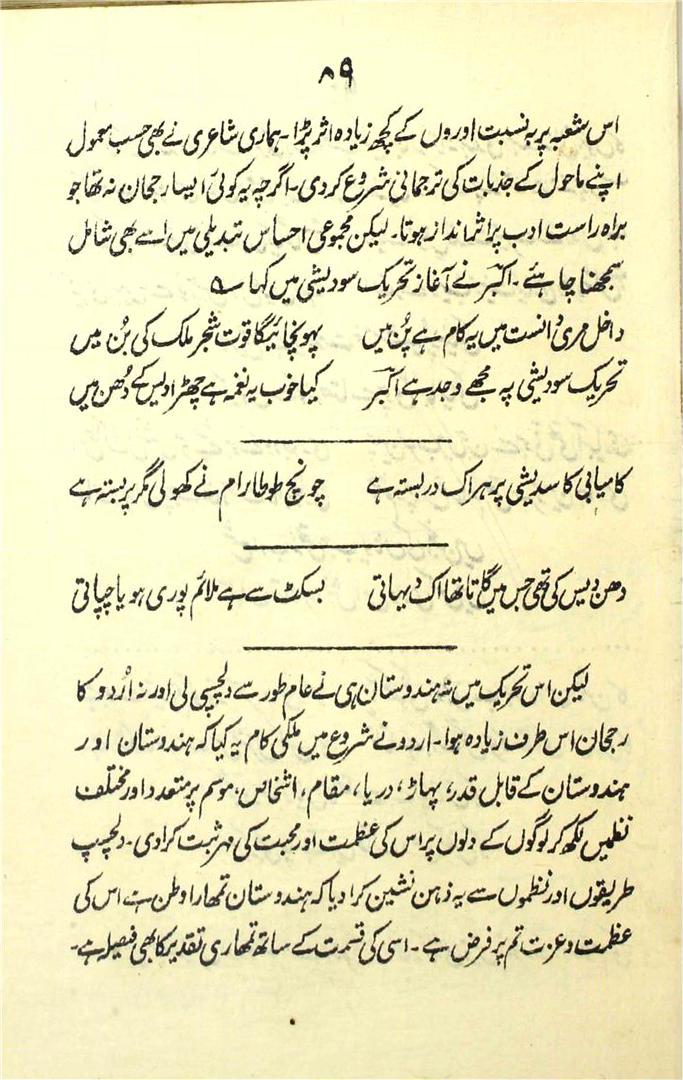 ۸۹
اس شعبہ پر بہ نسبت اوروں کے کچھ زیادہ اثر پڑا۔ ہماری شاعری نے بھی حسب معمول
اپنے ماحول کے جذبات کی ترجمانی شروع کر دی۔ اگرچہ یہ کوئی ایسا رجحان نہ تھا جو
براہ راست ادب پر اثر انداز ہوتا۔ لیکن مجموعی احساس تبدیلی میں اسے بھی شامل
سمجھنا چاہئے۔ اکبرؔ نے آغاز تحریک سودیشی میں کہا ؎
داخل مری دانست میں یہ کام ہے پُن میں پہونچائیگا قوت شجر ملک کی بُن میں
تحریک سودیشی پہ مجھے وجد ہے اکبرؔ کیا خوب یہ نغمہ ہے چھڑا دیس کے دُھن میں
کامیابی کا سدیشی پر ہر اک در بستہ ہے چونچ طوطا رام نے کھولی مگر پر بستہ ہے
دھن دیس کی تھی جس میں گاتا تھا اک دیہاتی بسکٹ سے ہے ملائم پوری ہو یا چپاتی
لیکن اس تحریک میں نہ ہندوستان ہی نے عام طور سے دلچسپی لی اور نہ اُردو کا
رجحان اس طرف زیادہ ہوا۔ اردو نے شروع میں ملکی کام یہ کیا کہ ہندوستان اور
ہندوستان کے قابل قدر، پہاڑ، دریا، مقام، اشخاص، موسم پر متعدد اور مختلف
نظمیں لکھ کر لوگوں کے دلوں پر اس کی عظمت اور محبت کی مہر ثبت کرا دی۔ دلچسپ
طریقوں اور نظموں سے یہ ذہن نشین کرا دیا کہ ہندوستان تمھارا وطن ہے اس کی
عظمت و عزت تم پر فرض ہے۔ اسی کی قسمت کے ساتھ تمھاری تقدیر کا بھی فیصلہ ہے۔